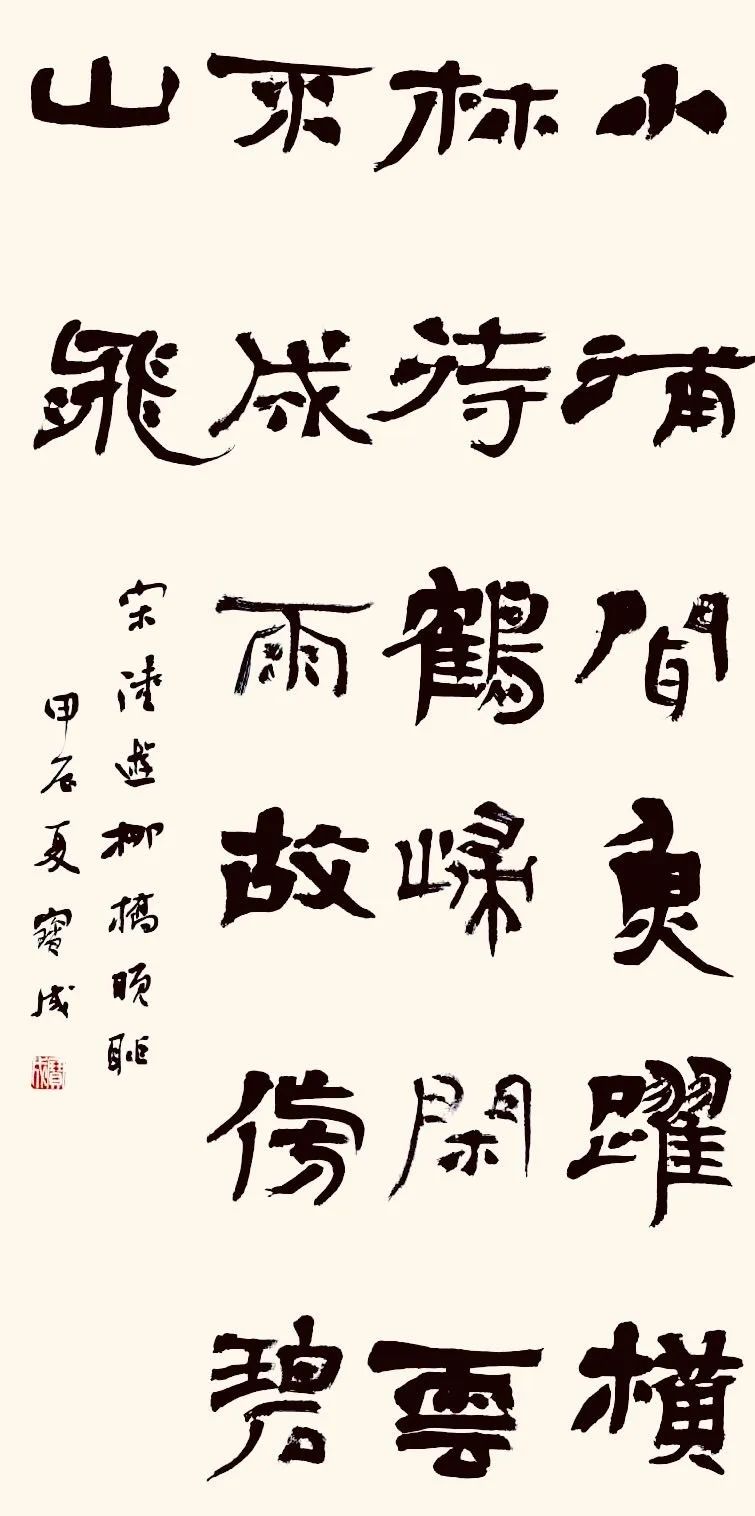 小浦聞魚躍橫
林待鶴歸閑雲
不成雨故傍碧
山飛
宋陸遊柳橋晚眺
甲辰夏寶成
寶成